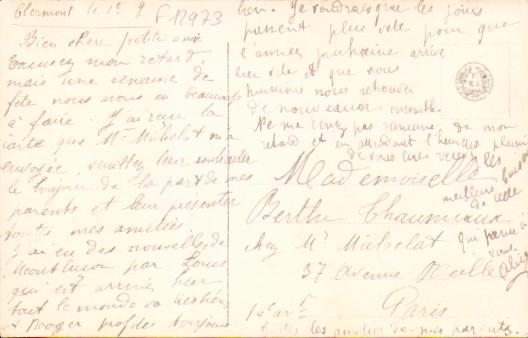 Clermont le 1er 9
F 12973
Bien chère petite amie
Excusez mon retard
mais une semaine de
fête nous avons eu beaucoup
à faire. J'ai reçu la
carte que Mme Michelat m'a
envoyée, veuillez leur souhaiter
le bonjour de la part de mes
parents et leur présenter
toutes mes amitiés.
J'ai eu des nouvelles de
par Louis
qui est arrivé hier
tout le monde va très bien
et Roger profite toujours
bien. Je voudrais que les jours
passent plus vite pour que
l'année prochaine arrive
bien vite et que nous
puissions nous retrouver
de nouveau ensemble.
Ne me tenez pas rancune de mon
retard et en attendant l'heureux plaisir
de vous lire recevez les
meilleurs baisers
de celle
qui pense à
vous.
Alice
Mademoiselle
Berthe Chaumieux
chez Mr Michelat
37 Avenue Reille
14e arrt Paris
Toutes les amitiés de mes parents.